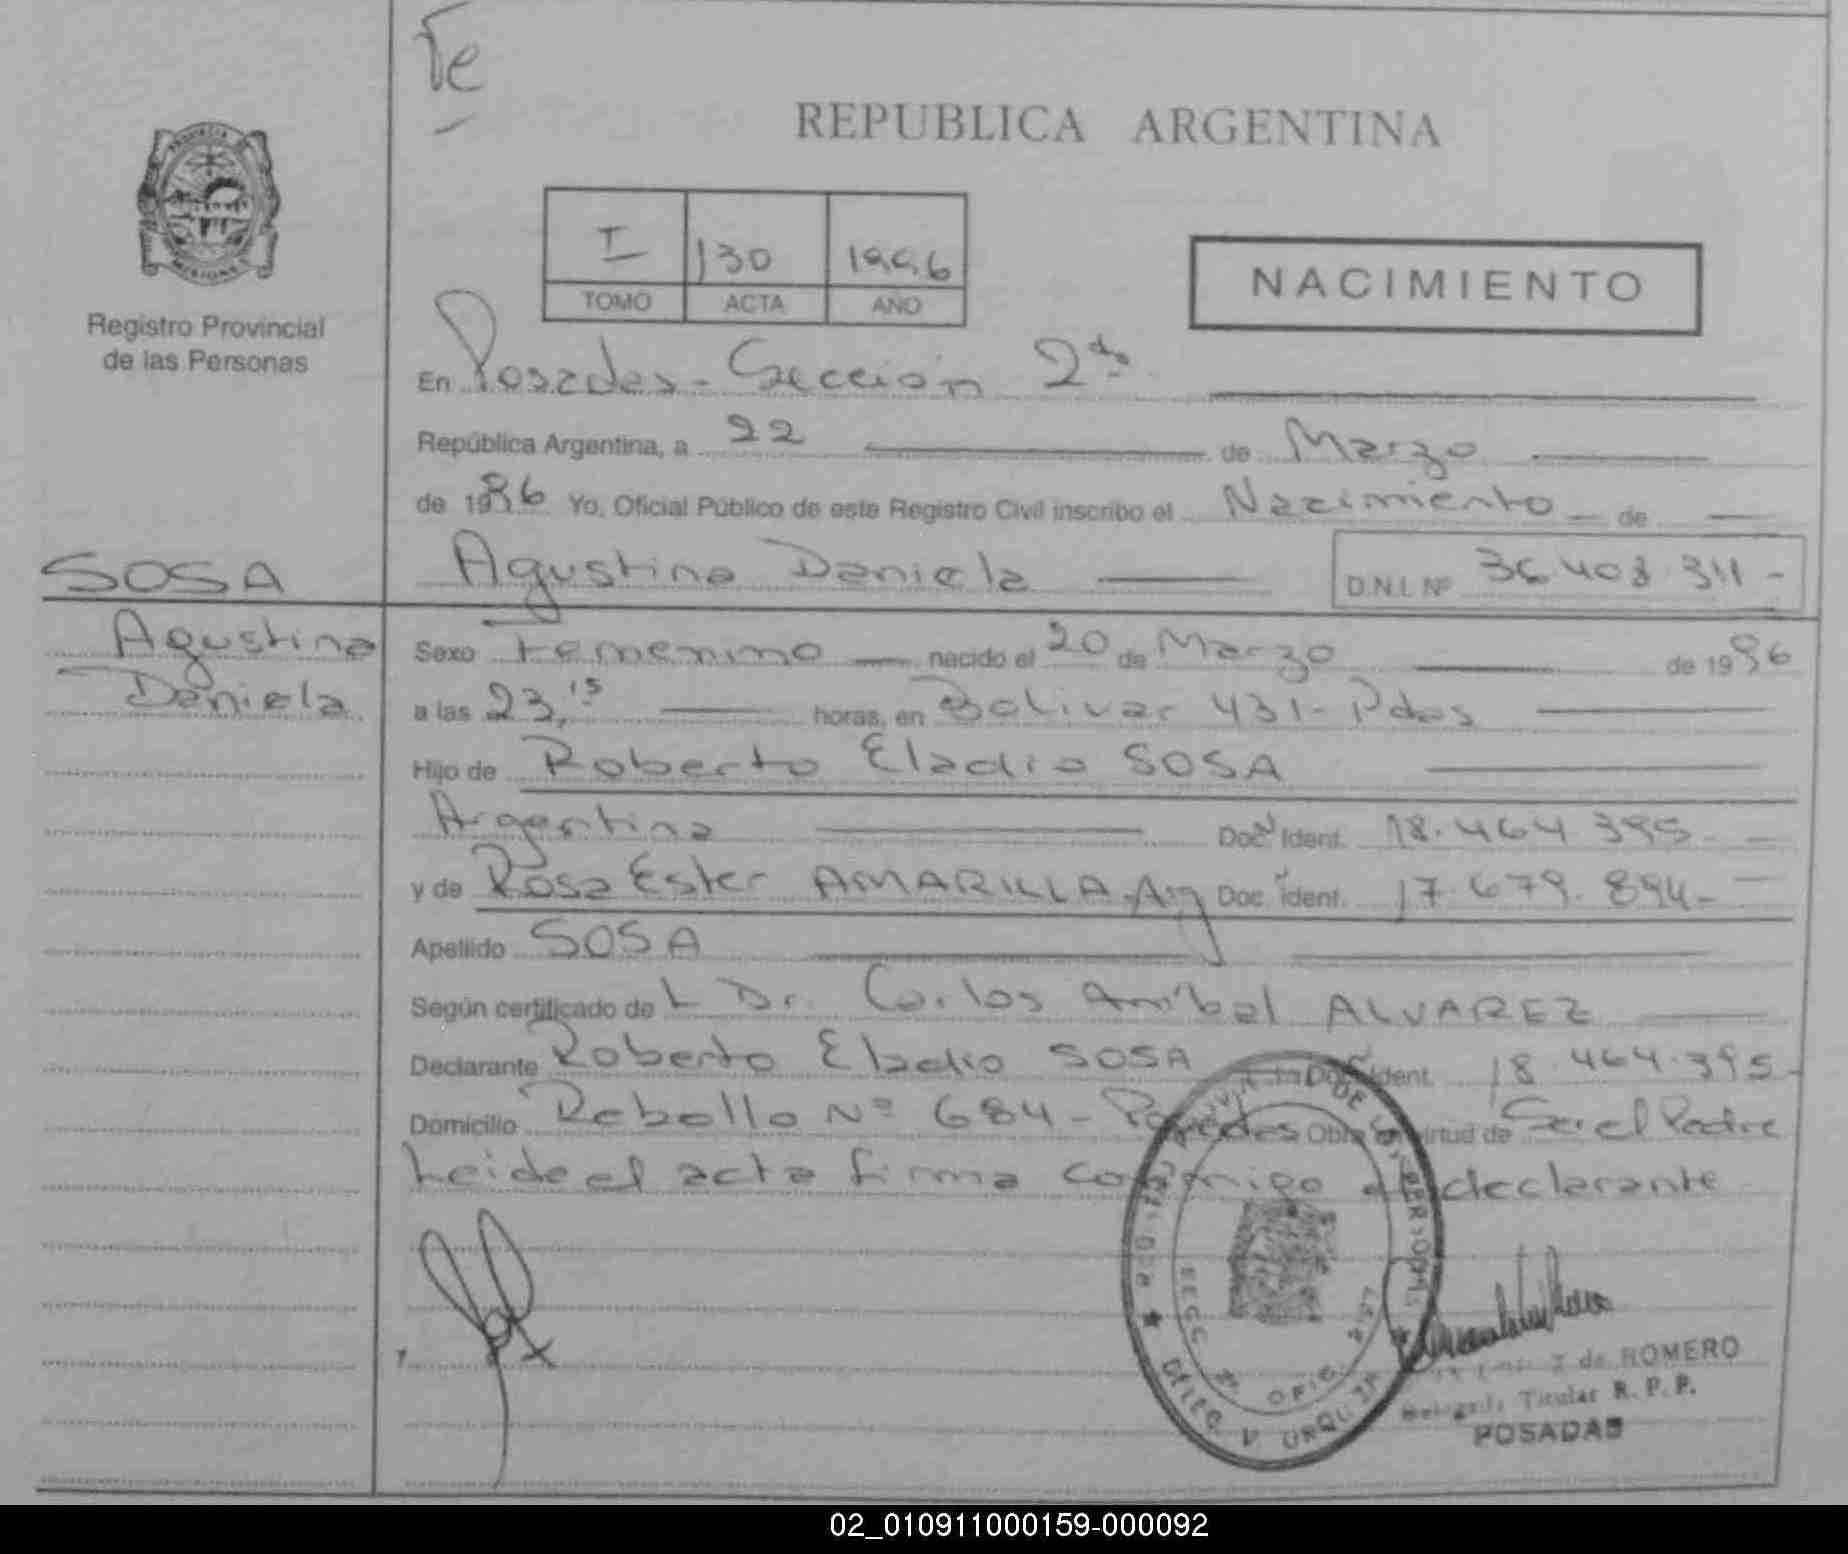 Te
REPUBLICA ARGENTINA
I 130 1996
TOMO ACTA AÑO
NACIMIENTO
Registro Provincial
de las Personas
En Posadas - Sección 2da
República Argentina, a 22 de Marzo
de 1996 Yo, Oficial Público de este Registro Civil inscribo el Nacimiento de
SOSA
Agustina Daniela D.N.I. Nº 36.403.311-
Agustina
Daniela
Sexo Femenino nacido el 20 de Marzo de 1996
a las 23,15 horas, en Bolivar 431 - Pdas
Hijo de Roberto Eladio SOSA
Argentina Doc. Ident. 18.464.395
y de Rosa Ester AMARILLA - Arg Doc. Ident. 17.679.894-
Apellido SOSA
Según certificado de L Dr. Carlos Anibal ALVAREZ
Declarante Roberto Eladio SOSA Doc. Ident. 18.464.395-
Domicilio Rebollo Nº 684 - Posadas Obra en virtud de Ser el Padre
Leida el acta firma conmigo el declarante
SECC. 2ª OFIC.
DELEG. V. URQUIZA
de ROMERO
Delegada Titular R. P. P.
POSADAS
02_010911000159-000092